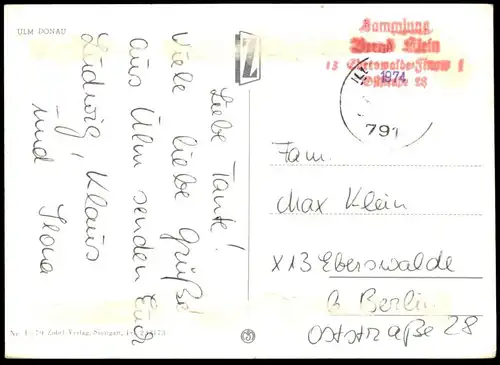 ULM DONAU
Liebe Tante!
Viele liebe Grüße
aus Ulm senden Euch
Ludwig, Klaus
und Ilona
Z
Sammlung
Bernd Klein
13 Eberswalde-Finow 1
28
1974
791
Fam.
Max Klein
X13 Eberswalde
b. Berlin
Oststraße 28
Zobel Verlag, Stuttgart,